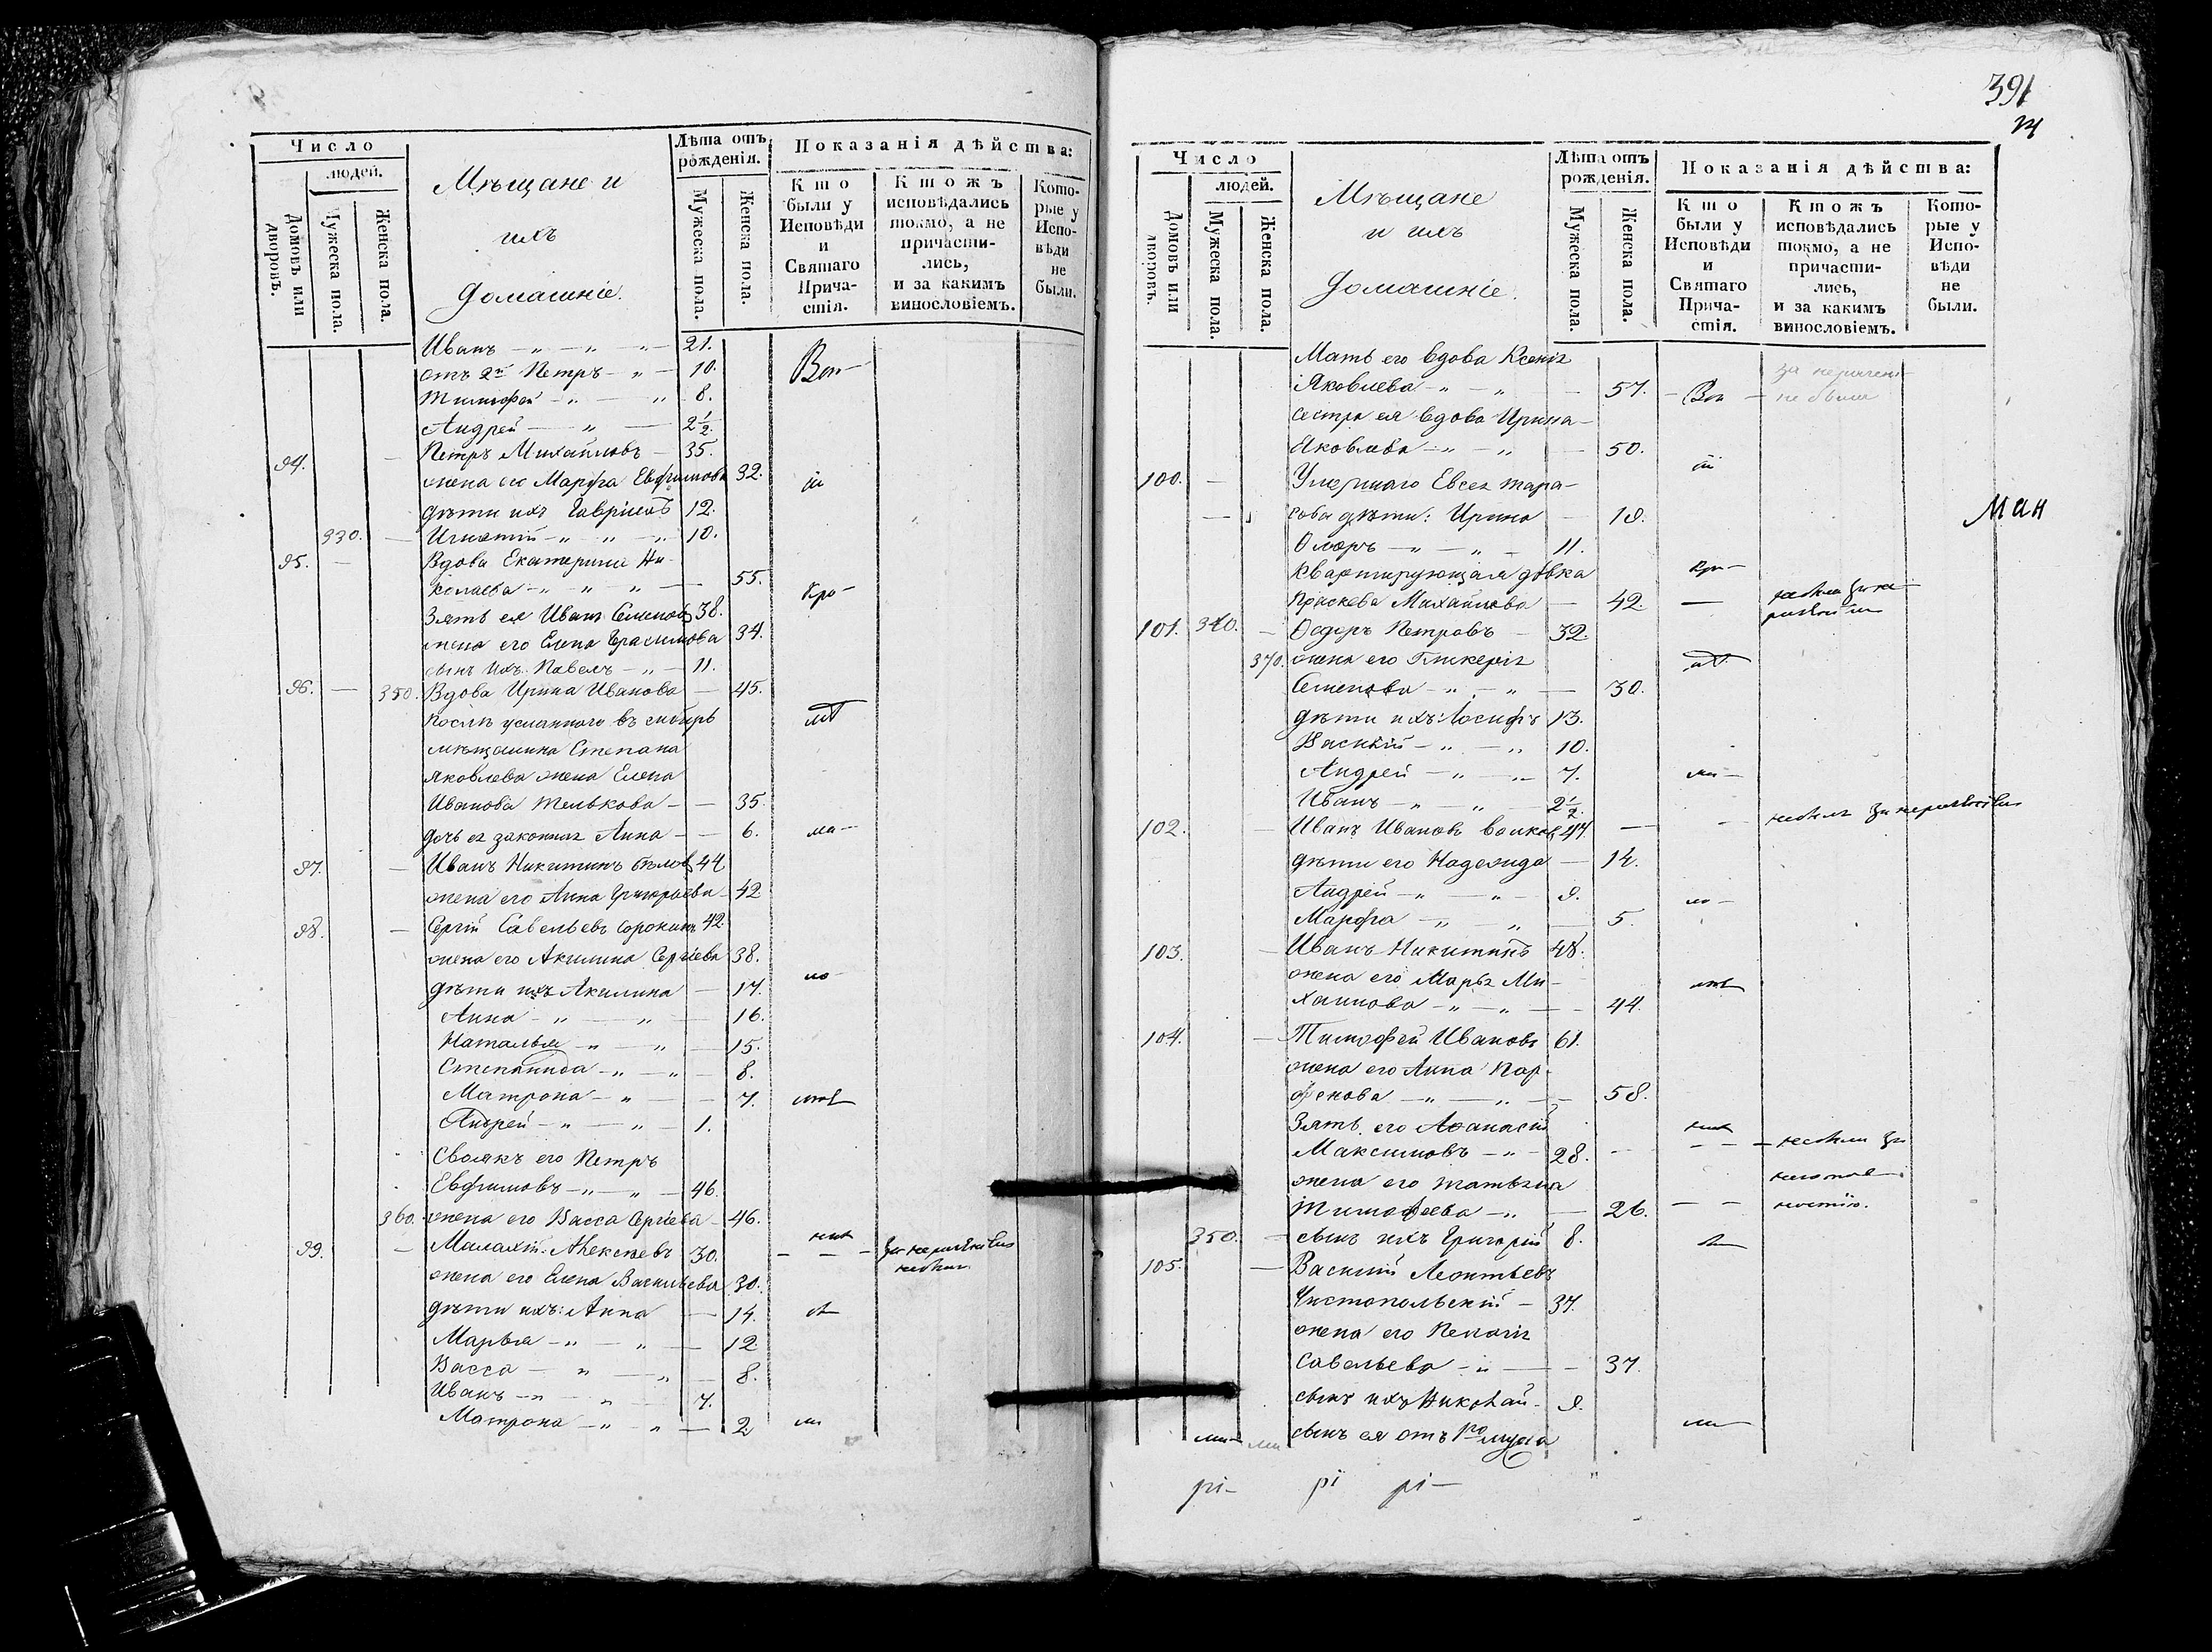 Число
людей.
Домовъ или дворовъ.
Мужеска пола.
Женска пола.
Мѣщане и
ихъ
домашніе.
Лѣта отъ рожденія.
Мужеска пола.
Женска пола.
Показанія дѣйства:
Кто были у Исповѣди и Святаго Прича-стія.
Ктожъ исповѣдались токмо, а не причасти-лись, и за какимъ винословіемъ.
Кото-рые у Испо-вѣди не были.
Иванъ — „ — „ — 21.
отъ 2й Петръ — „ — 10.
Тимофей — „ — „ 8.
Андрей — „ — 2 1/2.
94. — Петръ Михайловъ — 35.
жена его Марфа Евфимова 32.
дѣти ихъ Гавріилъ 12.
330. — Игнатій — „ — „ — 10.
95. — Вдова Екатерина Ни-
колаева — „ — „ — 55.
Зять ея Иванъ Семеновъ 38.
жена его Елена Герасимова 34.
сынъ ихъ Павелъ — „ — 11.
96. — 350. Вдова Ирина Иванова — 45.
Послѣ усланного въ сибирь
мѣщанина Степана
Яковлева жена Елена
Иванова — 35.
дочь ея законная Анна — 6.
97. — Иванъ Никитинъ 44.
жена его Анна Григорьева — 42
98. — Сергій Савельевъ Сорокинъ 42.
жена его Акилина Сергіева 38.
дѣти ихъ Акилина — 17.
Анна — „ — „ — 16.
Наталья — „ — „ — 15.
Степанида — „ — „ — 8.
Матрона — „ — 7.
Андрей — „ — „ — 1.
Своякъ его Петръ
Евфимовъ — „ — „ — 46.
360. жена его Васса Сергіева — 46.
99. — Малахій Алексѣевъ 30. — — —
жена его Елена Васильева 30.
дѣти ихъ: Анна — 14.
Марья — „ — „ — 12
Васса — „ — „ — 8.
Иванъ — „ — „ 7.
Матрона — „ — „ — 2
391
Число
людей.
Домовъ или дворовъ.
Мужеска пола.
Женска пола.
Мѣщане
и ихъ
домашніе.
Лѣта отъ рожденія.
Мужеска пола.
Женска пола.
Показанія дѣйства:
Кто были у Исповѣди и Святаго Прича-стія.
Ктожъ исповѣдались токмо, а не причасти-лись, и за какимъ винословіемъ.
Кото-рые у Испо-вѣди не были.
Мать его вдова Ксенія
Яковлева — „ — „ — 57.
сестра ея вдова Ирина
Яковлева — „ — „ — 50.
100. — Умершаго Евсея Тара-
сова дѣти: Ирина — 19.
Ѳедоръ — „ — „ — 11.
Квартирующая дѣвка
Праскева Михайлова — 42. —
101. 340. — Ѳедоръ Петровъ — 32.
370. жена его Гликерія
Семенова — „ — „ — 30.
дѣти ихъ: Іосифъ 13.
Василій — „ — „ 10.
Андрей — „ — „ 7.
Иванъ — „ — „ — 2 1/2.
102. Иванъ Ивановъ Волковъ 47. —
дѣти его Надежда — 14.
Андрей — „ — „ — 9.
Марфа — „ — „ — 5.
103. — Иванъ Никитинъ 48.
жена его Марья Ми-
хайлова — „ — „ — 44.
104. — Тимофей Ивановъ 61.
жена его Анна Пар-
фенова — „ — „ — 58.
Зять его Аѳанасій
Максимовъ — „ — 28.
жена его Татьяна
Тимофеева — „ — 26. — —
350. — сынъ ихъ Григорій 8.
105. — Василій Леонтьевъ
Чистопольскій — 37.
жена его Пелагія
Савельева — „ — 37.
сынъ ихъ Николай — 9.
сынъ ея отъ 1го мужа
Ман